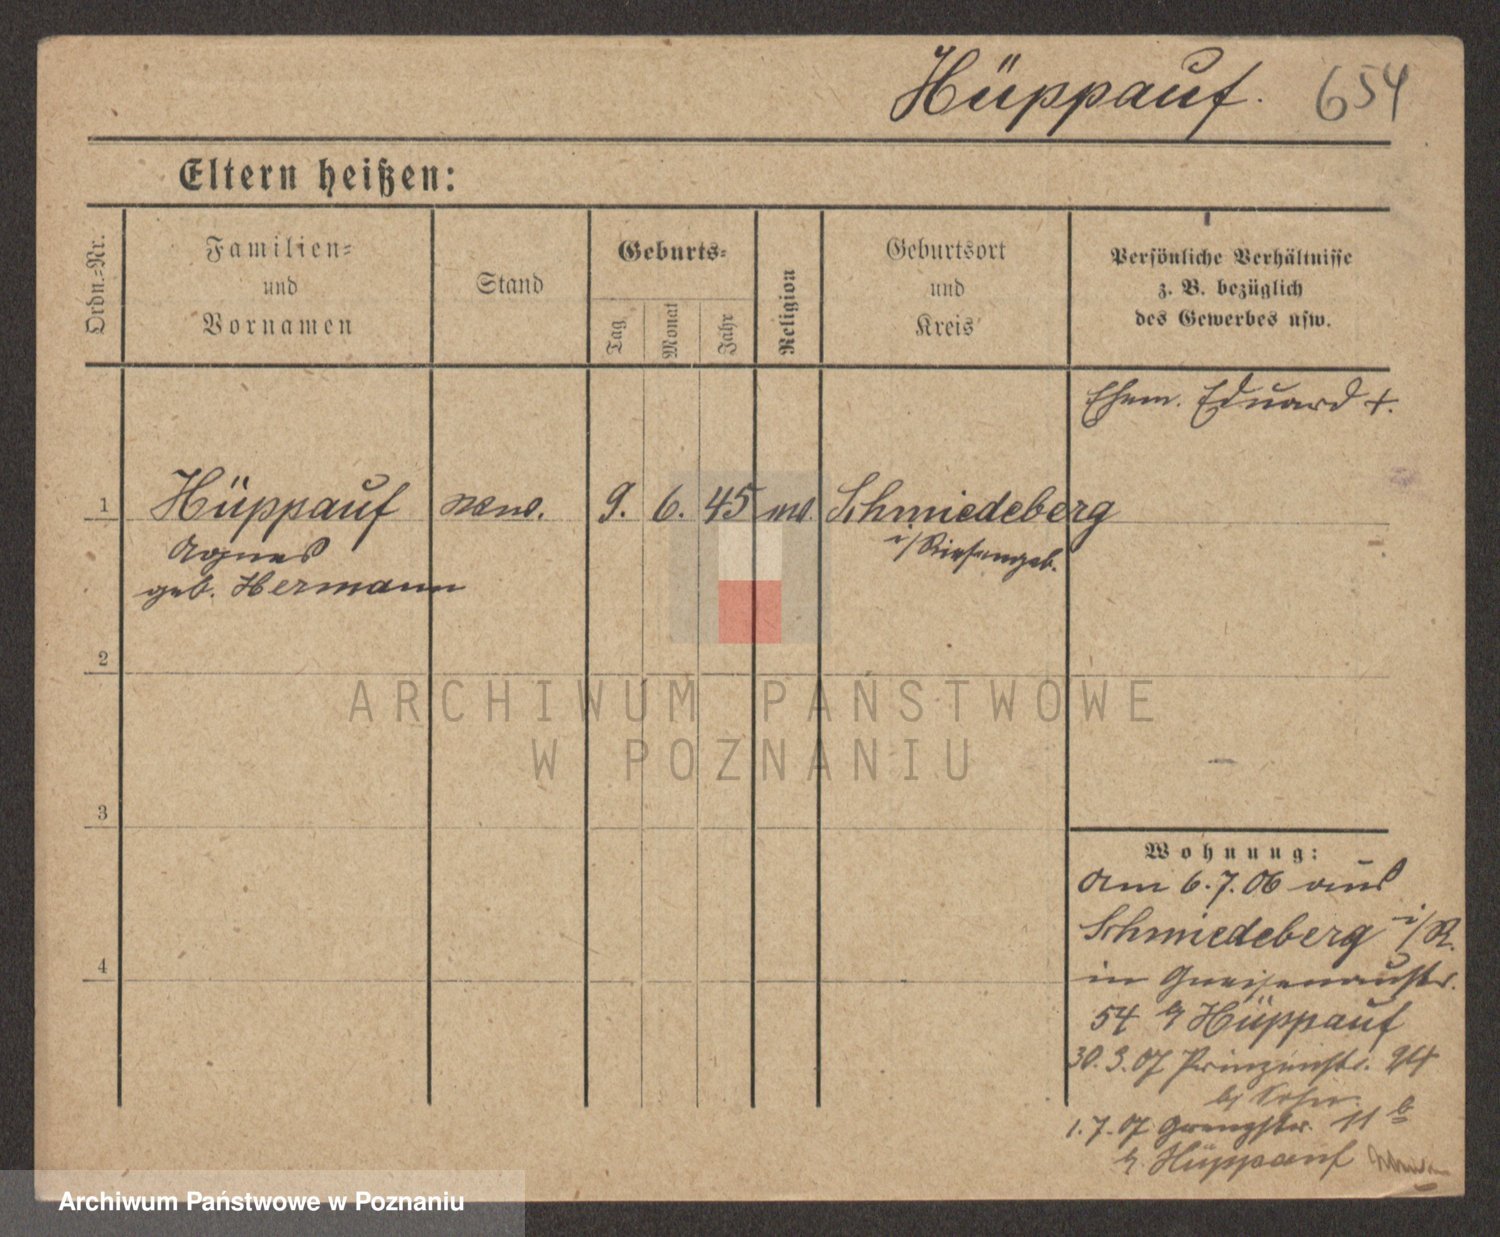 Hüppauf. 654
Eltern heißen:
Ordn.=Nr.
Familien=
und
Vornamen
Stand
Geburts=
Tag
Monat
Jahr
Religion
Geburtsort
und
Kreis
Persönliche Verhältnisse
z. B. bezüglich
des Gewerbes usw.
Ehem. Eduard +.
1 Hüppauf 9. 6. 45 Schmiedeberg
Agnes i/Riesengeb.
geb. Hermann
2
3
4
Wohnung:
Am 6.7.06 aus
Schmiedeberg i/R.
in Gneisenaustr.
54 b/ Hüppauf
30.3.07 Prinzenstr.
b/
1.7.07 Grenzstr. 11 b
b/ Hüppauf
ARCHIWUM PAŃSTWOWE
W POZNANIU
Archiwum Państwowe w Poznaniu